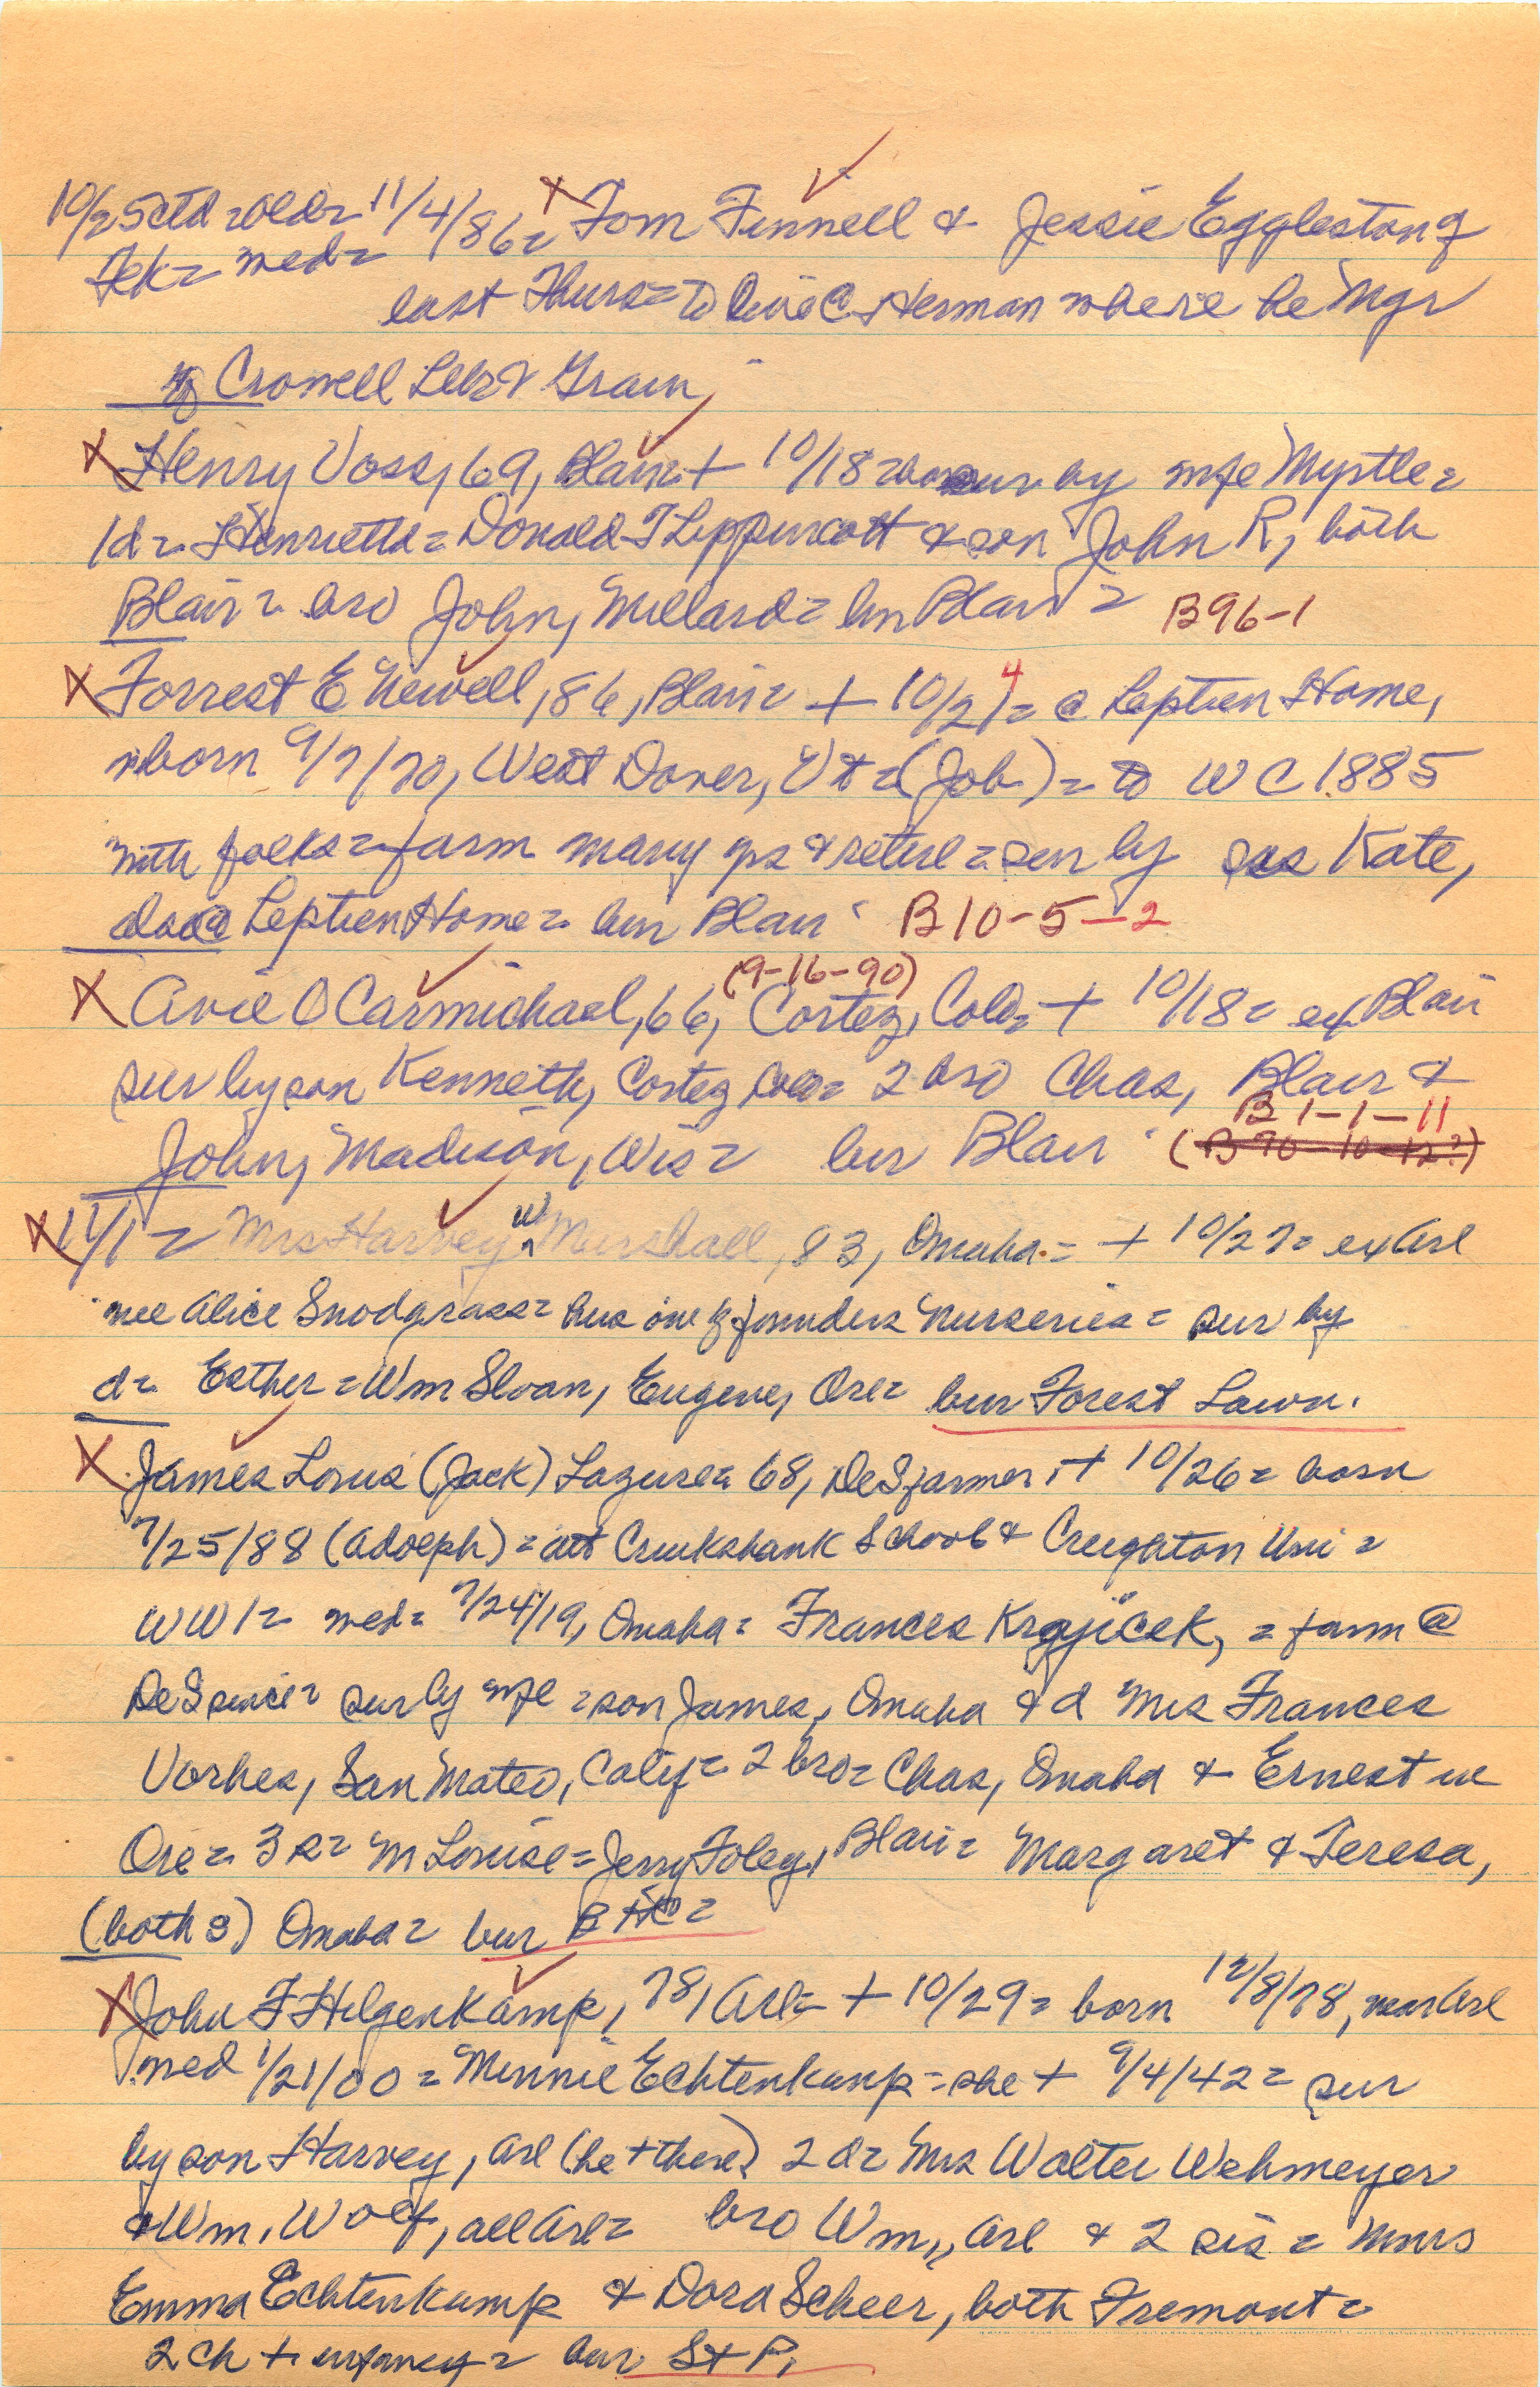 10/25 ctd = Olds = 11/4/86 = X Tom Fennell & Jessie Eggleston of
Tek = med =
last Thurs = to live @ Herman where he Mgr
of Crowell Lbr & Grain
X Henry Voss, 69, Blair + 10/18 = sur by wife Myrtle =
1d = Henrietta = Donald T Lippincott & son John R, both
Blair = bro John, Millard = bur Blair = B96-1
X Forrest E Newell, 86, Blair = + 10/21 4 = @ Leptien Home,
born 9/7/70, West Dover, Vt = (Job) = to WC 1885
with folks = farm many yrs & retire = sur by sis Kate,
also @ Leptien Home = bur Blair B10-5-2
(9-16-90)
X Avie O Carmichael, 66, Cortez, Colo = + 10/18 = ex Blair
sur by son Kenneth, Cortez Colo = 2 bro Chas, Blair &
B 1-1-11
John, Madison, Wis = bur Blair (B 70-10-12?)
X 11/1 = Mrs Harvey W Marshall, 83, Omaha = + 10/27 = ex Arl
nee Alice Snodgrass = hus one of founders Nurseries = sur by
d = Esther = Wm Sloan, Eugene, Ore = bur Forest Lawn.
X James Louis (Jack) Lazure = 68, DeS farmer, + 10/26 = born
7/25/88 (Adolph) = att Cruikshank School & Creighton Uni =
WW1 = med = 7/24/19, Omaha = Frances Krajicek, = farm @
DeS since = sur by wife = son James, Omaha & d Mrs Frances
Vorhes, San Mateo, Calif = 2 bro = Chas, Omaha & Ernest in
Ore = 3 s = M Louise = Jerry Foley, Blair = Margaret & Teresa,
(both S) Omaha = bur B HC =
X John F Hilgenkamp, 78, Arl = + 10/29 = born 12/8/78, near Arl
med 1/21/00 = Minnie Echtenkamp = she + 9/4/42 = sur
by son Harvey, Arl (he + there) 2 d = Mrs Walter Wehmeyer
& Wm. Wolf, all Arl = bro Wm,, Arl & 2 sis = Mmes
Emma Echtenkamp & Dora Scheer, both Fremont =
2 ch + infancy = bur St P.